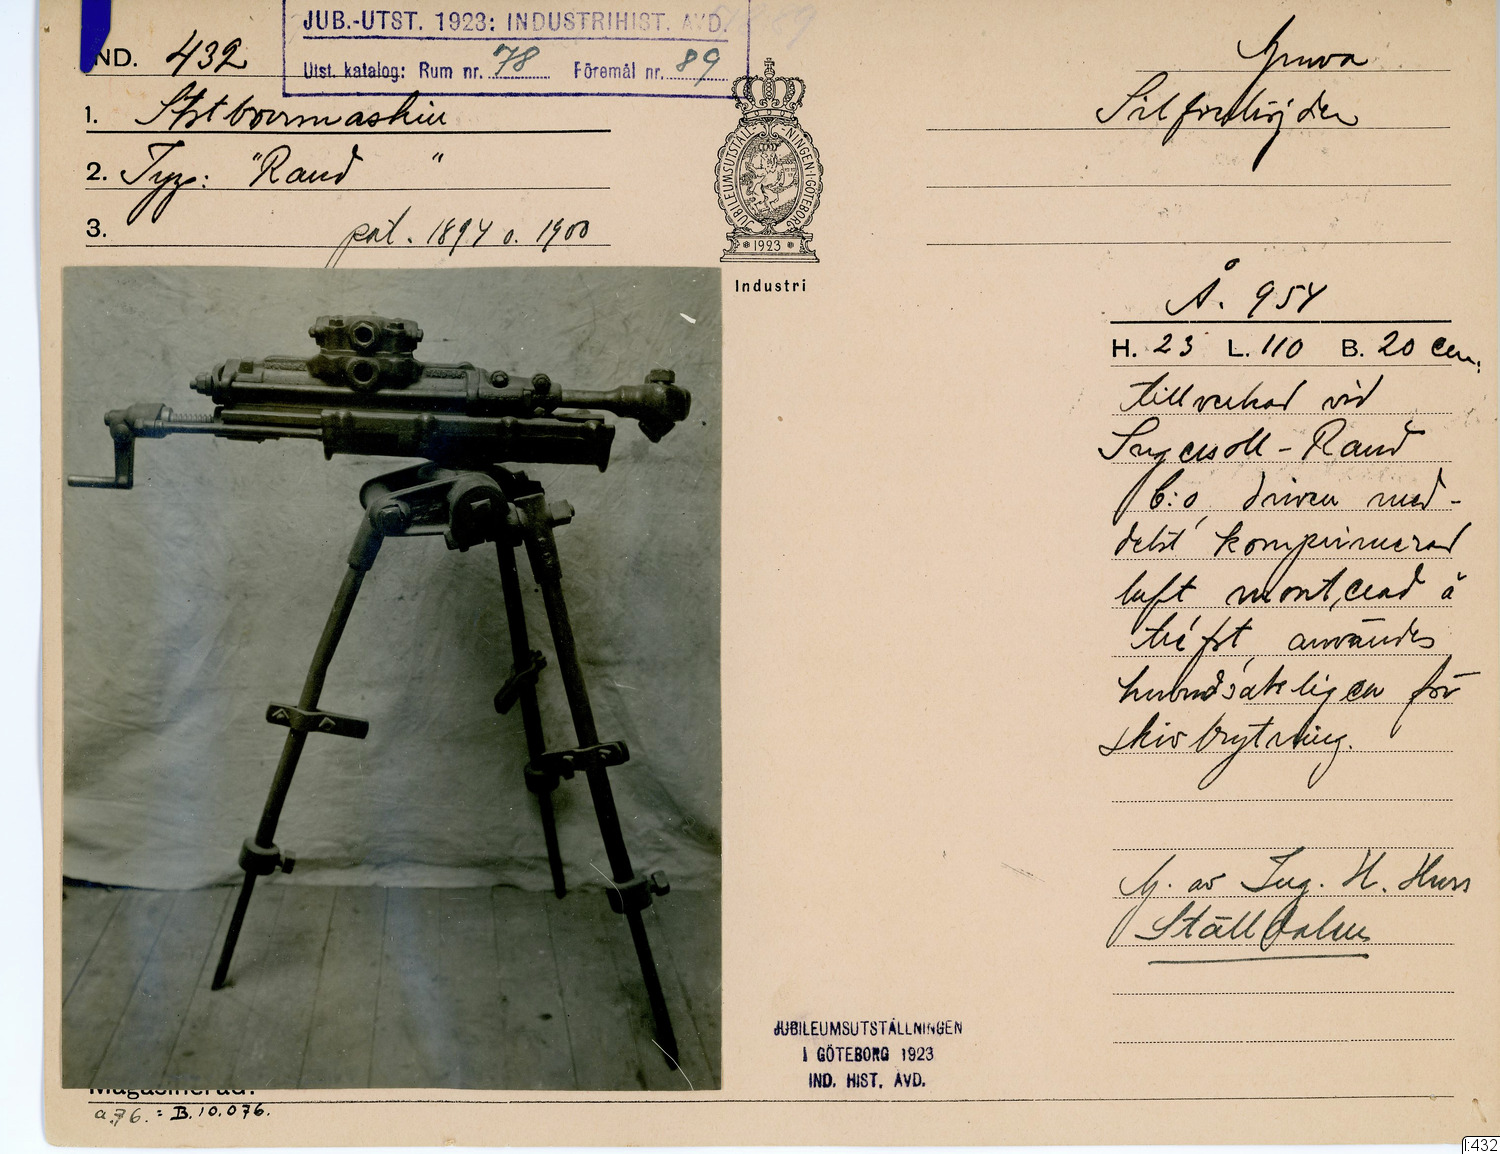 JUB.-UTST. 1923: INDUSTRIHIST. AVD.
Utst. katalog: Rum nr. 78 Föremål nr. 89
IND. 432
1. Stötborrmaskin
2. Typ: "Rand"
3. pat. 1894 o. 1900
JUBILEUMSUTSTÄLLNINGEN I GÖTEBORG
1923
Industri
Gruva
Silfverhöjden
Å. 954
H. 23 L. 110 B. 20 cm.
tillverkad vid
Ingersoll-Rand
C:o, driven med-
delst komprimerad
luft, monterad å
trefot, användes
huvudsakligen för
skivbrytning.
G. av Ing. H. Huss
Ställdalen
JUBILEUMSUTSTÄLLNINGEN
I GÖTEBORG 1923
IND. HIST. AVD.
Magasinerad:
a.76. = B.10.076.
I:432